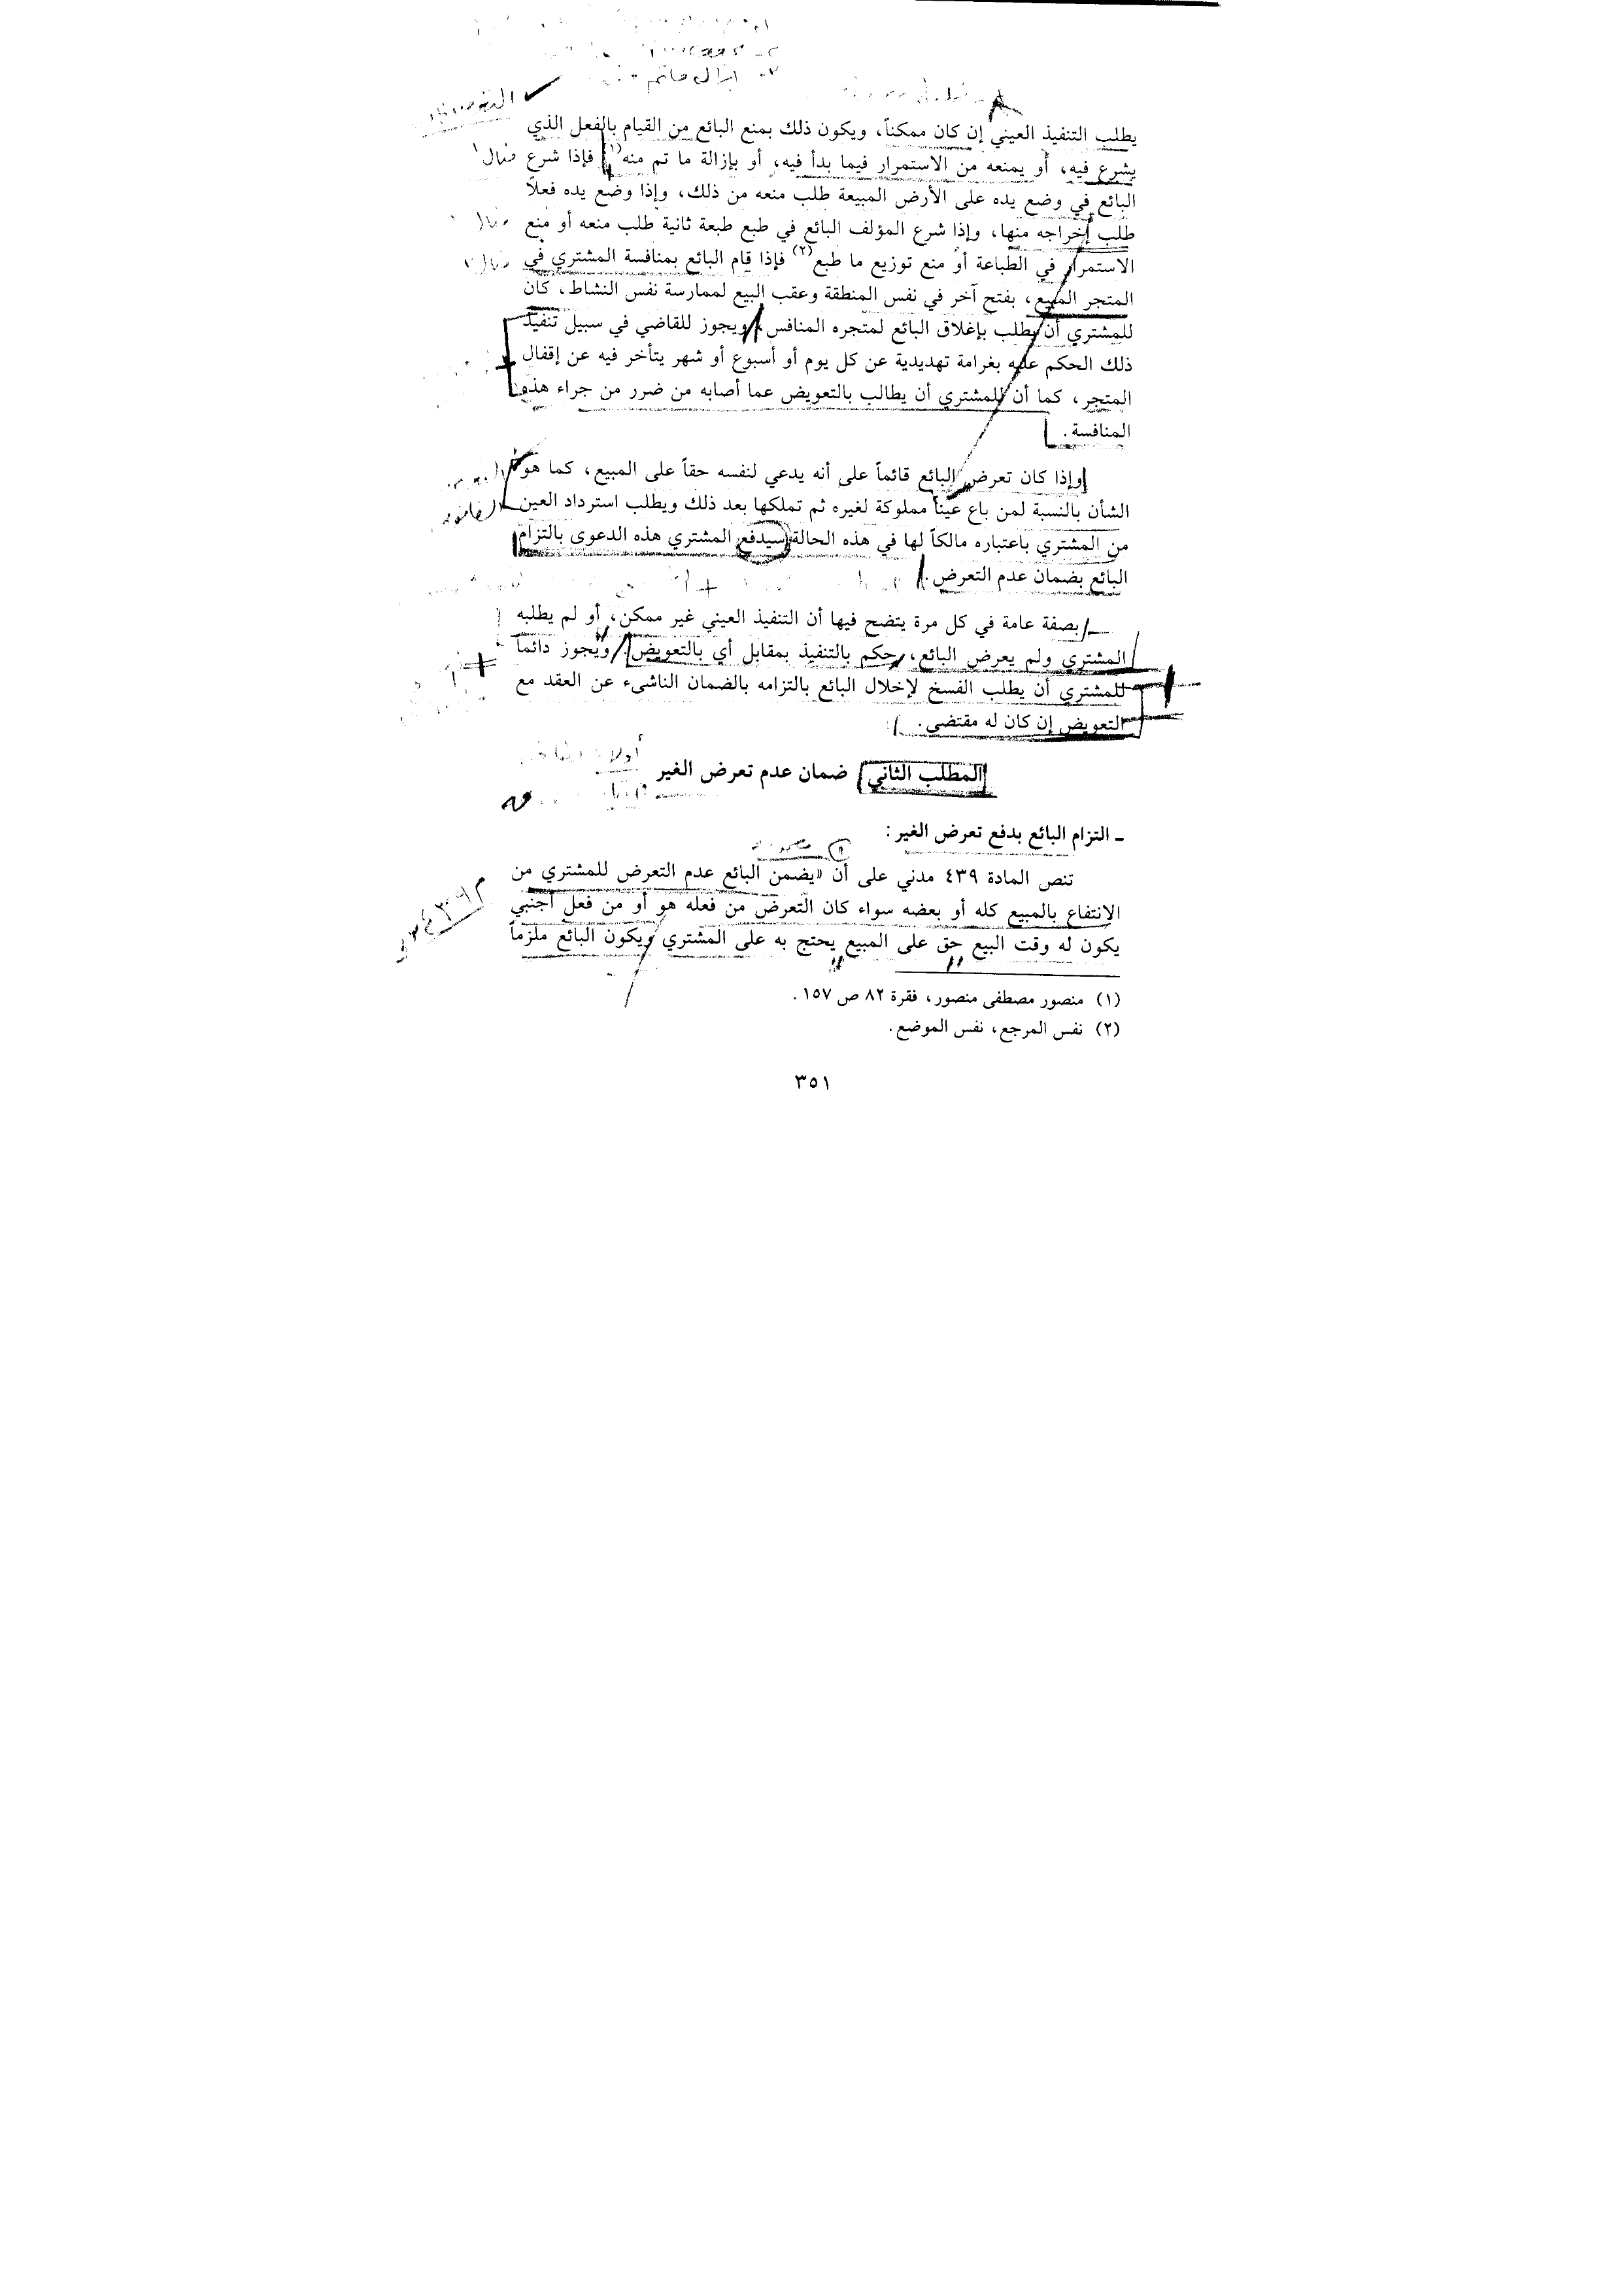 ٢- ازالة ما تم
يطلب التنفيذ العيني إن كان ممكناً، ويكون ذلك بمنع البائع من القيام بالفعل الذي
يشرع فيه، أو يمنعه من الاستمرار فيما بدأ فيه، أو بإزالة ما تم منه(١) فإذا شرع مثال١
البائع في وضع يده على الأرض المبيعة طلب منعه من ذلك، وإذا وضع يده فعلاً
طلب إخراجه منها، وإذا شرع المؤلف البائع في طبع طبعة ثانية طلب منعه أو منع مثال
الاستمرار في الطباعة أو منع توزيع ما طبع(٢) فإذا قام البائع بمنافسة المشتري في مثال
المتجر المبيع، بفتح آخر في نفس المنطقة وعقب البيع لممارسة نفس النشاط، كان
للمشتري أن يطلب بإغلاق البائع لمتجره المنافس، ويجوز للقاضي في سبيل تنفيذ
ذلك الحكم عليه بغرامة تهديدية عن كل يوم أو أسبوع أو شهر يتأخر فيه عن إقفال
المتجر، كما أن للمشتري أن يطالب بالتعويض عما أصابه من ضرر من جراء هذه
المنافسة.
وإذا كان تعرض البائع قائماً على أنه يدعي لنفسه حقاً على المبيع، كما هو
الشأن بالنسبة لمن باع عيناً مملوكة لغيره ثم تملكها بعد ذلك ويطلب استرداد العين
من المشتري باعتباره مالكاً لها في هذه الحالة سيدفع المشتري هذه الدعوى بالتزام
البائع بضمان عدم التعرض.
بصفة عامة في كل مرة يتضح فيها أن التنفيذ العيني غير ممكن، أو لم يطلبه
المشتري ولم يعرض البائع، حكم بالتنفيذ بمقابل أي بالتعويض. ويجوز دائماً
للمشتري أن يطلب الفسخ لإخلال البائع بالتزامه بالضمان الناشىء عن العقد مع
التعويض إن كان له مقتضى.
المطلب الثاني ضمان عدم تعرض الغير
ـ التزام البائع بدفع تعرض الغير:
تنص المادة ٤٣٩ مدني على أن «يضمن البائع عدم التعرض للمشتري من
الانتفاع بالمبيع كله أو بعضه سواء كان التعرض من فعله هو أو من فعل أجنبي
يكون له وقت البيع حق على المبيع يحتج به على المشتري ويكون البائع ملزماً
م ٤٣٩
(١) منصور مصطفى منصور، فقرة ٨٢ ص ١٥٧.
(٢) نفس المرجع، نفس الموضع.
٣٥١